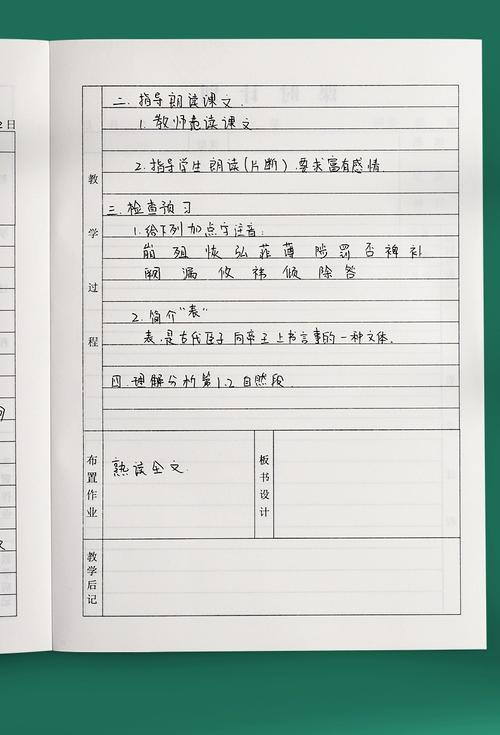 2日
二、指导朗读课文.
1. 教师范读课文
2. 指导学生朗读(片断).要求富有感情.
三、检查预习
1. 给下列加点字注音:
崩 殂 恢 弘 菲 薄 陟 罚 否 裨 补
阙 漏 攸 祎 倾 除 答
2. 简介"表"
表.是古代臣子向帝王上书言事的一种文体.
四.理解分析第1.2自然段.
教学过程
布置作业
熟读全文.
板书设计
教学后记